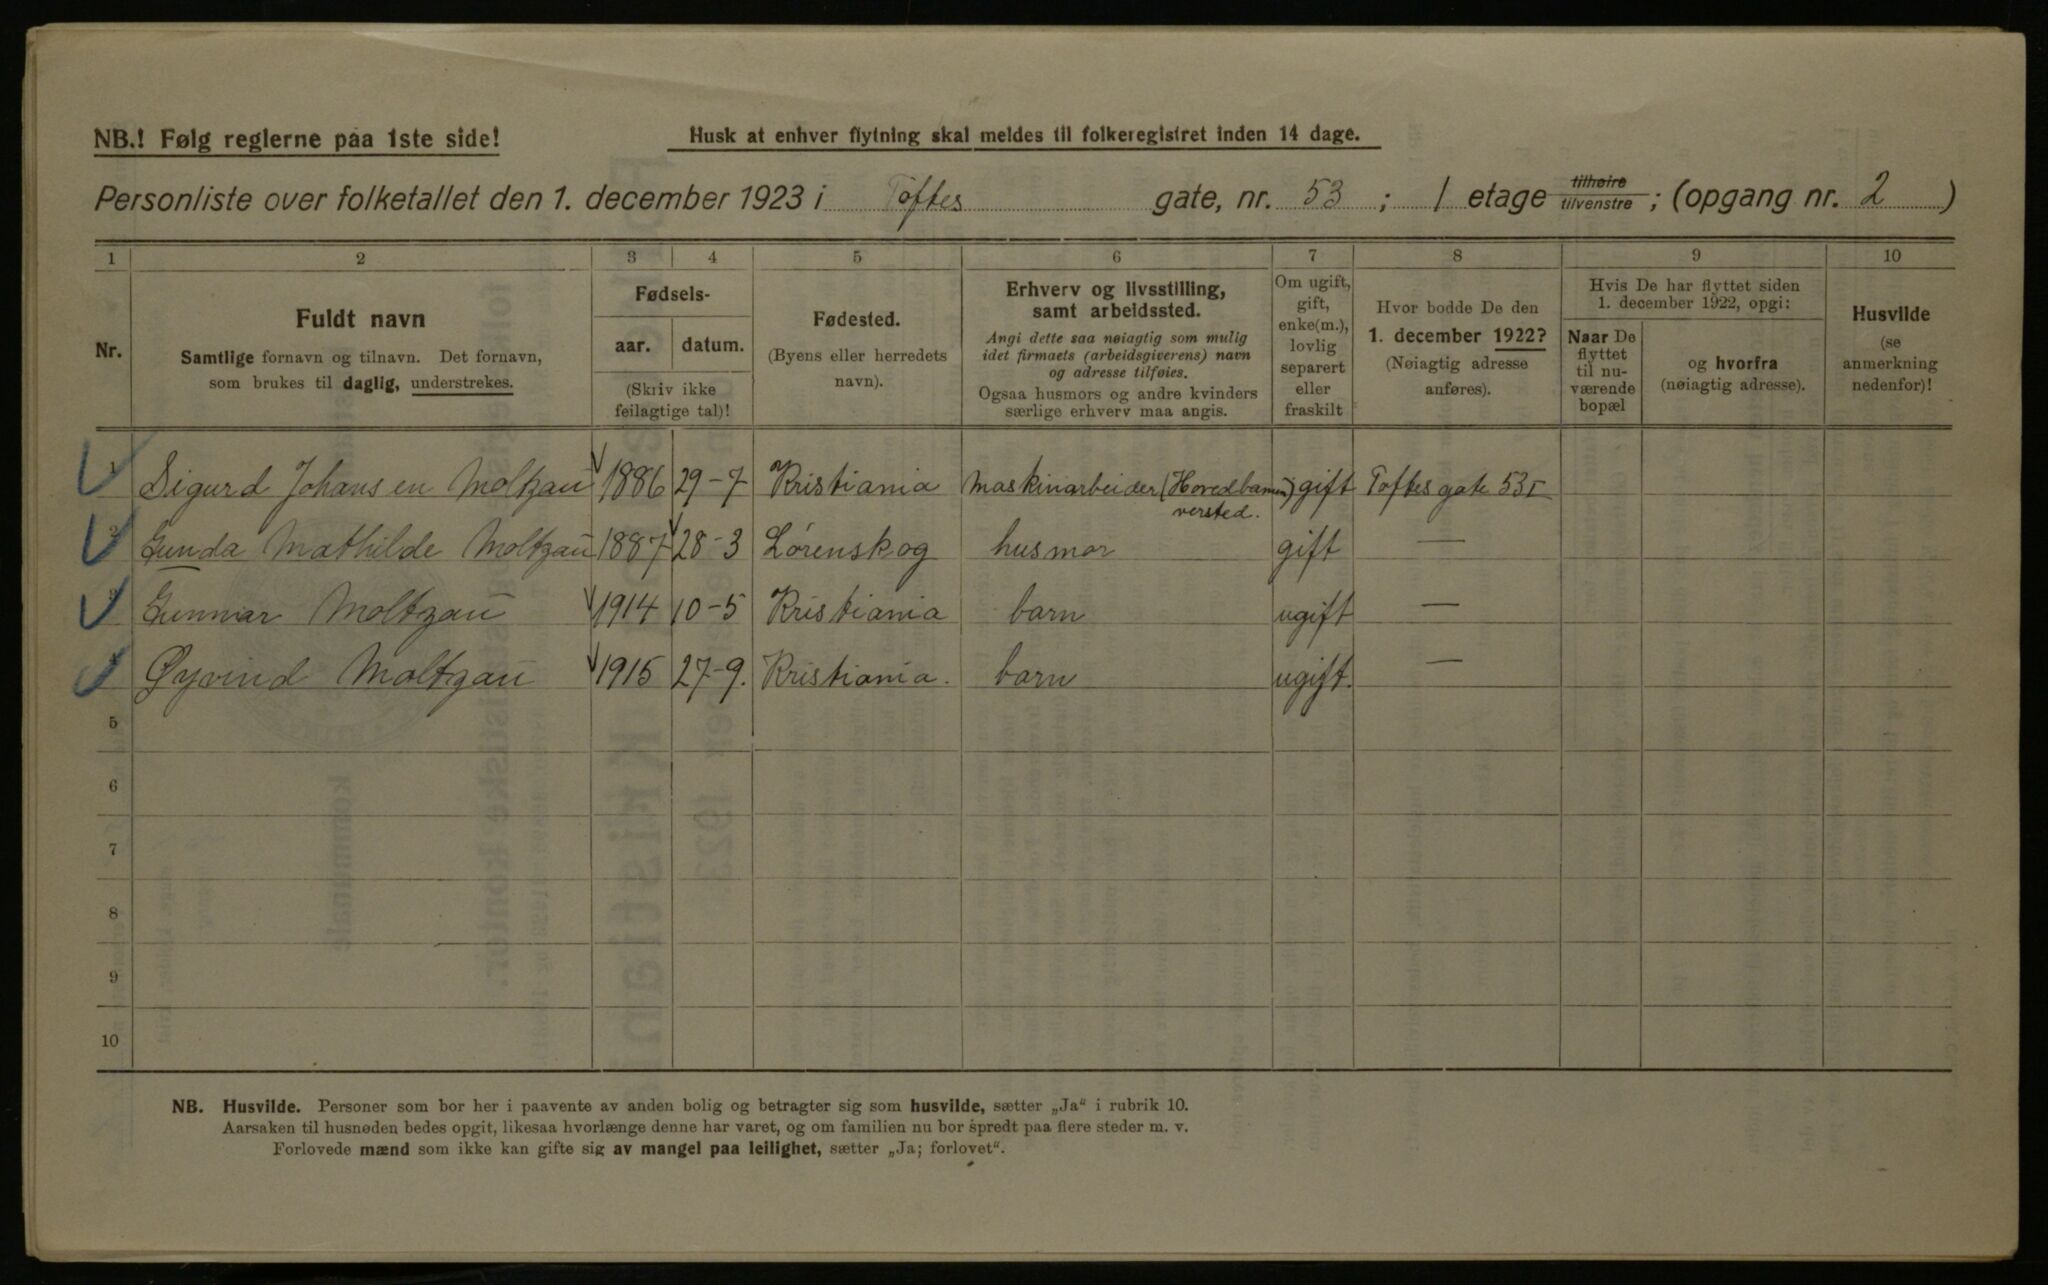 NB.! Følg reglerne paa 1ste side!
Husk at enhver flytning skal meldes til folkeregistret inden 14 dage.
Personliste over folketallet den 1. december 1923 i Toftes gate, nr. 53 ; 1 etage tilhøire tilvenstre ; (opgang nr. 2 )
1 2 3 4 5 6 7 8 9 10
Nr.
Fuldt navn
Samtlige fornavn og tilnavn. Det fornavn,
som brukes til daglig, understrekes.
Fødsels-
aar. datum.
(Skriv ikke
feilagtige tal)!
Fødested.
(Byens eller herredets
navn).
Erhverv og livsstilling,
samt arbeidssted.
Angi dette saa nøiagtig som mulig
idet firmaets (arbeidsgiverens) navn
og adresse tilføies.
Ogsaa husmors og andre kvinders
særlige erhverv maa angis.
Om ugift,
gift,
enke(m.),
lovlig
separert
eller
fraskilt
Hvor bodde De den
1. december 1922?
(Nøiagtig adresse
anføres).
Hvis De har flyttet siden
1. december 1922, opgi:
Naar De
flyttet
til nu-
værende
bopæl
og hvorfra
(nøiagtig adresse).
Husvilde
(se
anmerkning
nedenfor)!
1 Sigurd Johansen Moltzau 1886 29-7 Kristiania Maskinarbeider (Hovedbanen) gift Toftes gate 53 I
versted.
2 Gunda Mathilde Moltzau 1887 28-3 Lørenskog husmor gift —
3 Gunnar Moltzau 1914 10-5 Kristiania barn ugift —
4 Øyvind Moltzau 1915 27-9. Kristiania. barn ugift. —
5
6
7
8
9
10
NB. Husvilde. Personer som bor her i paavente av anden bolig og betragter sig som husvilde, sætter „Ja“ i rubrik 10.
Aarsaken til husnøden bedes opgit, likesaa hvorlænge denne har varet, og om familien nu bor spredt paa flere steder m. v.
Forlovede mænd som ikke kan gifte sig av mangel paa leilighet, sætter „Ja; forlovet“.